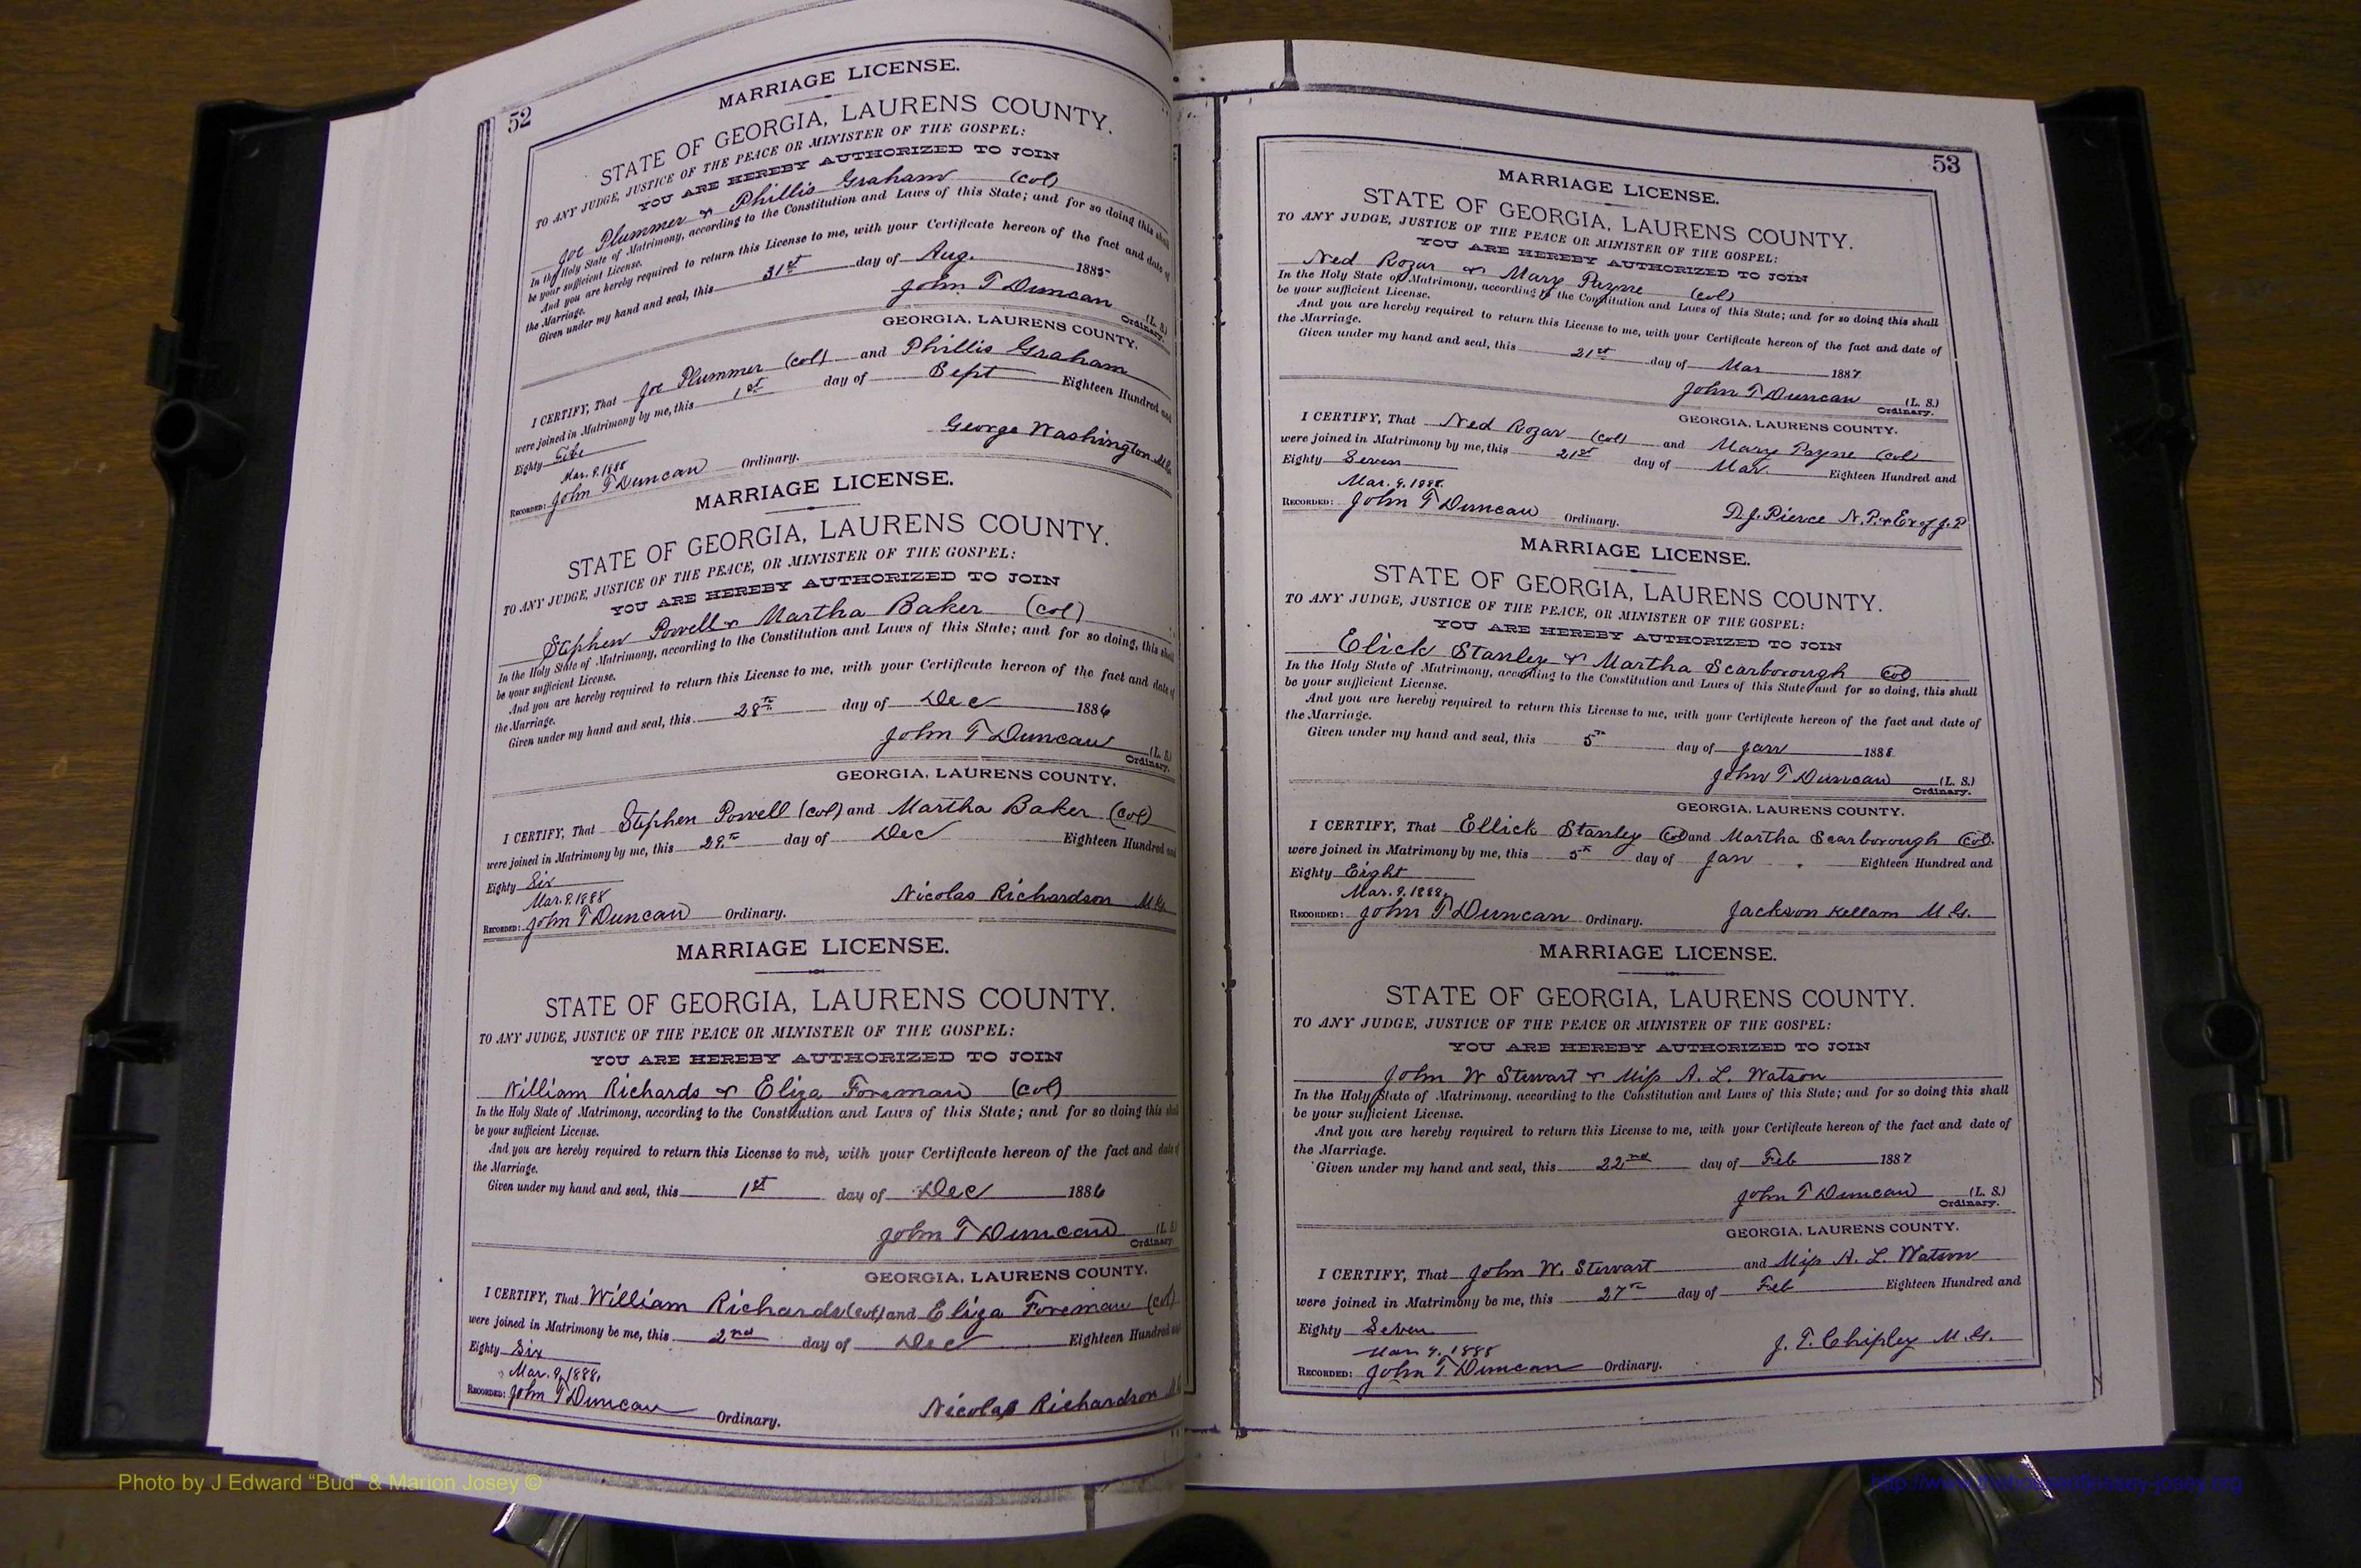 52
MARRIAGE LICENSE.
STATE OF GEORGIA, LAURENS COUNTY.
TO ANY JUDGE, JUSTICE OF THE PEACE OR MINISTER OF THE GOSPEL:
YOU ARE HEREBY AUTHORIZED TO JOIN
Joe Plummer & Phillis Graham (col)
In the Holy State of Matrimony, according to the Constitution and Laws of this State; and for so doing this shall
be your sufficient License.
And you are hereby required to return this License to me, with your Certificate hereon of the fact and date of
the Marriage.
Given under my hand and seal, this 31st day of Aug. 1885
John T Duncan (L. S.)
Ordinary.
GEORGIA, LAURENS COUNTY.
I CERTIFY, That Joe Plummer (col) and Phillis Graham
were joined in Matrimony by me, this 1st day of Sept Eighteen Hundred and
Eighty Five
George Washington M.G.
Mar. 9. 1888
RECORDED: John T Duncan Ordinary.
MARRIAGE LICENSE.
STATE OF GEORGIA, LAURENS COUNTY.
TO ANY JUDGE, JUSTICE OF THE PEACE, OR MINISTER OF THE GOSPEL:
YOU ARE HEREBY AUTHORIZED TO JOIN
Stephen Powell & Martha Baker (col)
In the Holy State of Matrimony, according to the Constitution and Laws of this State; and for so doing, this shall
be your sufficient License.
And you are hereby required to return this License to me, with your Certificate hereon of the fact and date of
the Marriage.
Given under my hand and seal, this 28th day of Dec 1886
John T Duncan (L. S.)
Ordinary.
GEORGIA, LAURENS COUNTY.
I CERTIFY, That Stephen Powell (col) and Martha Baker (col)
were joined in Matrimony by me, this 29th day of Dec Eighteen Hundred and
Eighty Six
Mar. 9. 1888
Nicolas Richardson M.G.
RECORDED: John T Duncan Ordinary.
MARRIAGE LICENSE.
STATE OF GEORGIA, LAURENS COUNTY.
TO ANY JUDGE, JUSTICE OF THE PEACE OR MINISTER OF THE GOSPEL:
YOU ARE HEREBY AUTHORIZED TO JOIN
William Richards & Eliza Foreman (col)
In the Holy State of Matrimony, according to the Constitution and Laws of this State; and for so doing this shall
be your sufficient License.
And you are hereby required to return this License to me, with your Certificate hereon of the fact and date of
the Marriage.
Given under my hand and seal, this 1st day of Dec 1886
John T Duncan (L. S.)
Ordinary.
GEORGIA, LAURENS COUNTY.
I CERTIFY, That William Richards (col) and Eliza Foreman (col)
were joined in Matrimony be me, this 2nd day of Dec Eighteen Hundred and
Eighty Six
Mar. 9, 1888.
RECORDED: John T Duncan Ordinary.
Nicolas Richardson
53
MARRIAGE LICENSE.
STATE OF GEORGIA, LAURENS COUNTY.
TO ANY JUDGE, JUSTICE OF THE PEACE OR MINISTER OF THE GOSPEL:
YOU ARE HEREBY AUTHORIZED TO JOIN
Ned Rozar & Mary Payne (col)
In the Holy State of Matrimony, according to the Constitution and Laws of this State; and for so doing this shall
be your sufficient License.
And you are hereby required to return this License to me, with your Certificate hereon of the fact and date of
the Marriage.
Given under my hand and seal, this 21st day of Mar 1887
John T Duncan (L. S.)
Ordinary.
GEORGIA, LAURENS COUNTY.
I CERTIFY, That Ned Rozar (col) and Mary Payne (col)
were joined in Matrimony by me, this 21st day of Mar. Eighteen Hundred and
Eighty Seven
Mar. 9. 1888.
RECORDED: John T Duncan Ordinary.
D.J. Pierce N.P. & Ex of J.P
MARRIAGE LICENSE.
STATE OF GEORGIA, LAURENS COUNTY.
TO ANY JUDGE, JUSTICE OF THE PEACE, OR MINISTER OF THE GOSPEL:
YOU ARE HEREBY AUTHORIZED TO JOIN
Elick Stanley & Martha Scarborough Col
In the Holy State of Matrimony, according to the Constitution and Laws of this State and for so doing, this shall
be your sufficient License.
And you are hereby required to return this License to me, with your Certificate hereon of the fact and date of
the Marriage.
Given under my hand and seal, this 5th day of Jan 1888
John T Duncan (L. S.)
Ordinary.
GEORGIA, LAURENS COUNTY.
I CERTIFY, That Ellick Stanley Col and Martha Scarborough Col.
were joined in Matrimony by me, this 5th day of Jan Eighteen Hundred and
Eighty Eight
Mar. 9. 1888.
RECORDED: John T Duncan Ordinary.
Jackson Kellam M.G.
MARRIAGE LICENSE.
STATE OF GEORGIA, LAURENS COUNTY.
TO ANY JUDGE, JUSTICE OF THE PEACE OR MINISTER OF THE GOSPEL:
YOU ARE HEREBY AUTHORIZED TO JOIN
John W Stewart & Miss A. L. Watson
In the Holy State of Matrimony, according to the Constitution and Laws of this State; and for so doing this shall
be your sufficient License.
And you are hereby required to return this License to me, with your Certificate hereon of the fact and date of
the Marriage.
Given under my hand and seal, this 22nd day of Feb 1887
John T Duncan (L. S.)
Ordinary.
GEORGIA, LAURENS COUNTY.
I CERTIFY, That John W. Stewart and Miss A. L. Watson
were joined in Matrimony be me, this 27th day of Feb Eighteen Hundred and
Eighty Seven
J. T. Chipley M.G.
Mar 9. 1888
RECORDED: John T Duncan Ordinary.
Photo by J Edward “Bud” & Marion Josey ©